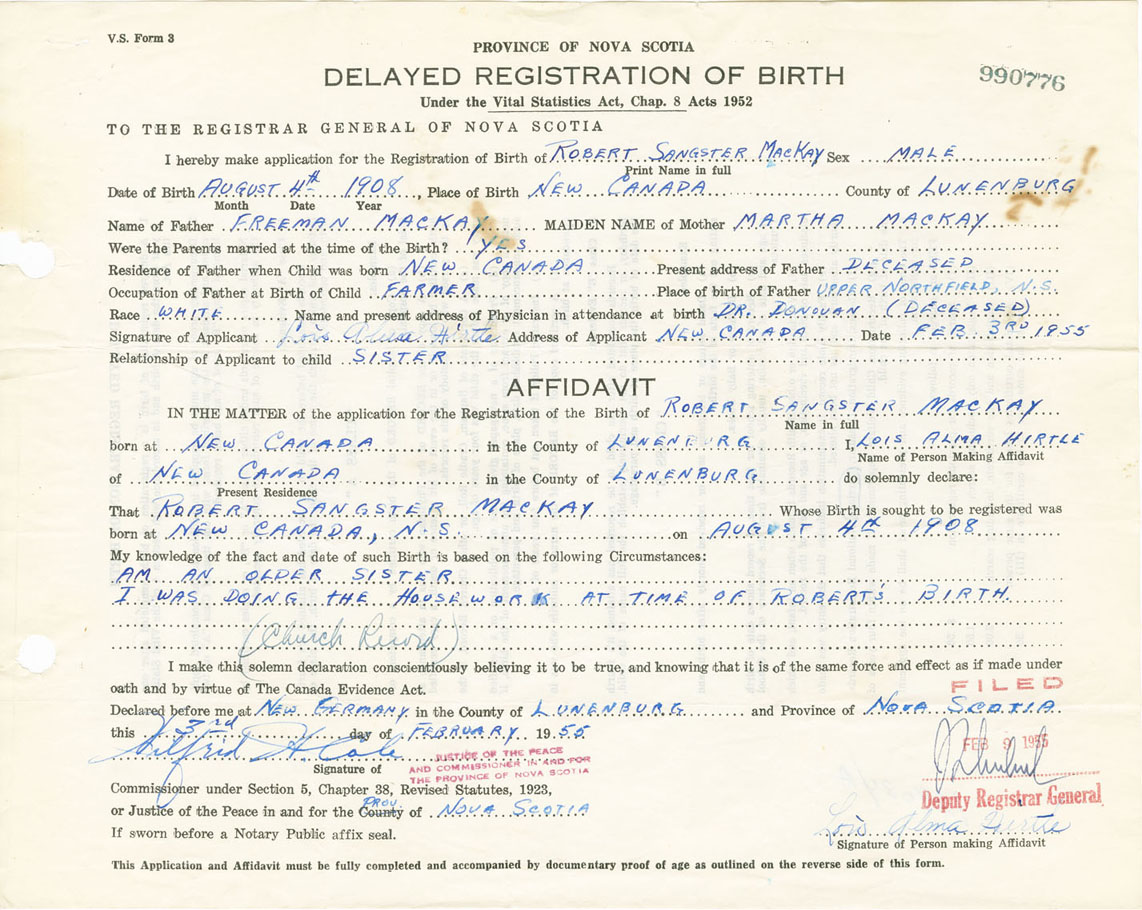 V.S. Form 3
PROVINCE OF NOVA SCOTIA
DELAYED REGISTRATION OF BIRTH
990776
Under the Vital Statistics Act, Chap. 8 Acts 1952
TO THE REGISTRAR GENERAL OF NOVA SCOTIA
I hereby make application for the Registration of Birth of ROBERT SANGSTER MACKAY Sex MALE
Print Name in full
Date of Birth AUGUST 4th 1908, Place of Birth NEW CANADA County of LUNENBURG
Month Date Year
Name of Father FREEMAN MACKAY MAIDEN NAME of Mother MARTHA MACKAY
Were the Parents married at the time of the Birth? YES
Residence of Father when Child was born NEW CANADA Present address of Father DECEASED
Occupation of Father at Birth of Child FARMER Place of birth of Father UPPER NORTHFIELD, N.S.
Race WHITE Name and present address of Physician in attendance at birth DR. DONOVAN (DECEASED)
Signature of Applicant Lois Alma Hirtle Address of Applicant NEW CANADA Date FEB. 3RD 1955
Relationship of Applicant to child SISTER
AFFIDAVIT
IN THE MATTER of the application for the Registration of the Birth of ROBERT SANGSTER MACKAY
Name in full
born at NEW CANADA in the County of LUNENBURG I, LOIS ALMA HIRTLE
Name of Person Making Affidavit
of NEW CANADA in the County of LUNENBURG do solemnly declare:
Present Residence
That ROBERT SANGSTER MACKAY Whose Birth is sought to be registered was
born at NEW CANADA, N.S. on AUGUST 4th 1908
My knowledge of the fact and date of such Birth is based on the following Circumstances:
AM AN OLDER SISTER
I WAS DOING THE HOUSEWORK AT TIME OF ROBERT'S BIRTH
(Church Record)
I make this solemn declaration conscientiously believing it to be true, and knowing that it is of the same force and effect as if made under
oath and by virtue of The Canada Evidence Act.
FILED
Declared before me at NEW GERMANY in the County of LUNENBURG and Province of NOVA SCOTIA
this 3rd day of FEBRUARY 1955
FEB 9 1955
Wilfrid H. Cole
JUSTICE OF THE PEACE
AND COMMISSIONER IN AND FOR
THE PROVINCE OF NOVA SCOTIA
Signature of
Commissioner under Section 5, Chapter 38, Revised Statutes, 1923,
Deputy Registrar General
PROV.
or Justice of the Peace in and for the County of NOVA SCOTIA
Lois Alma Hirtle
If sworn before a Notary Public affix seal.
Signature of Person making Affidavit
This Application and Affidavit must be fully completed and accompanied by documentary proof of age as outlined on the reverse side of this form.